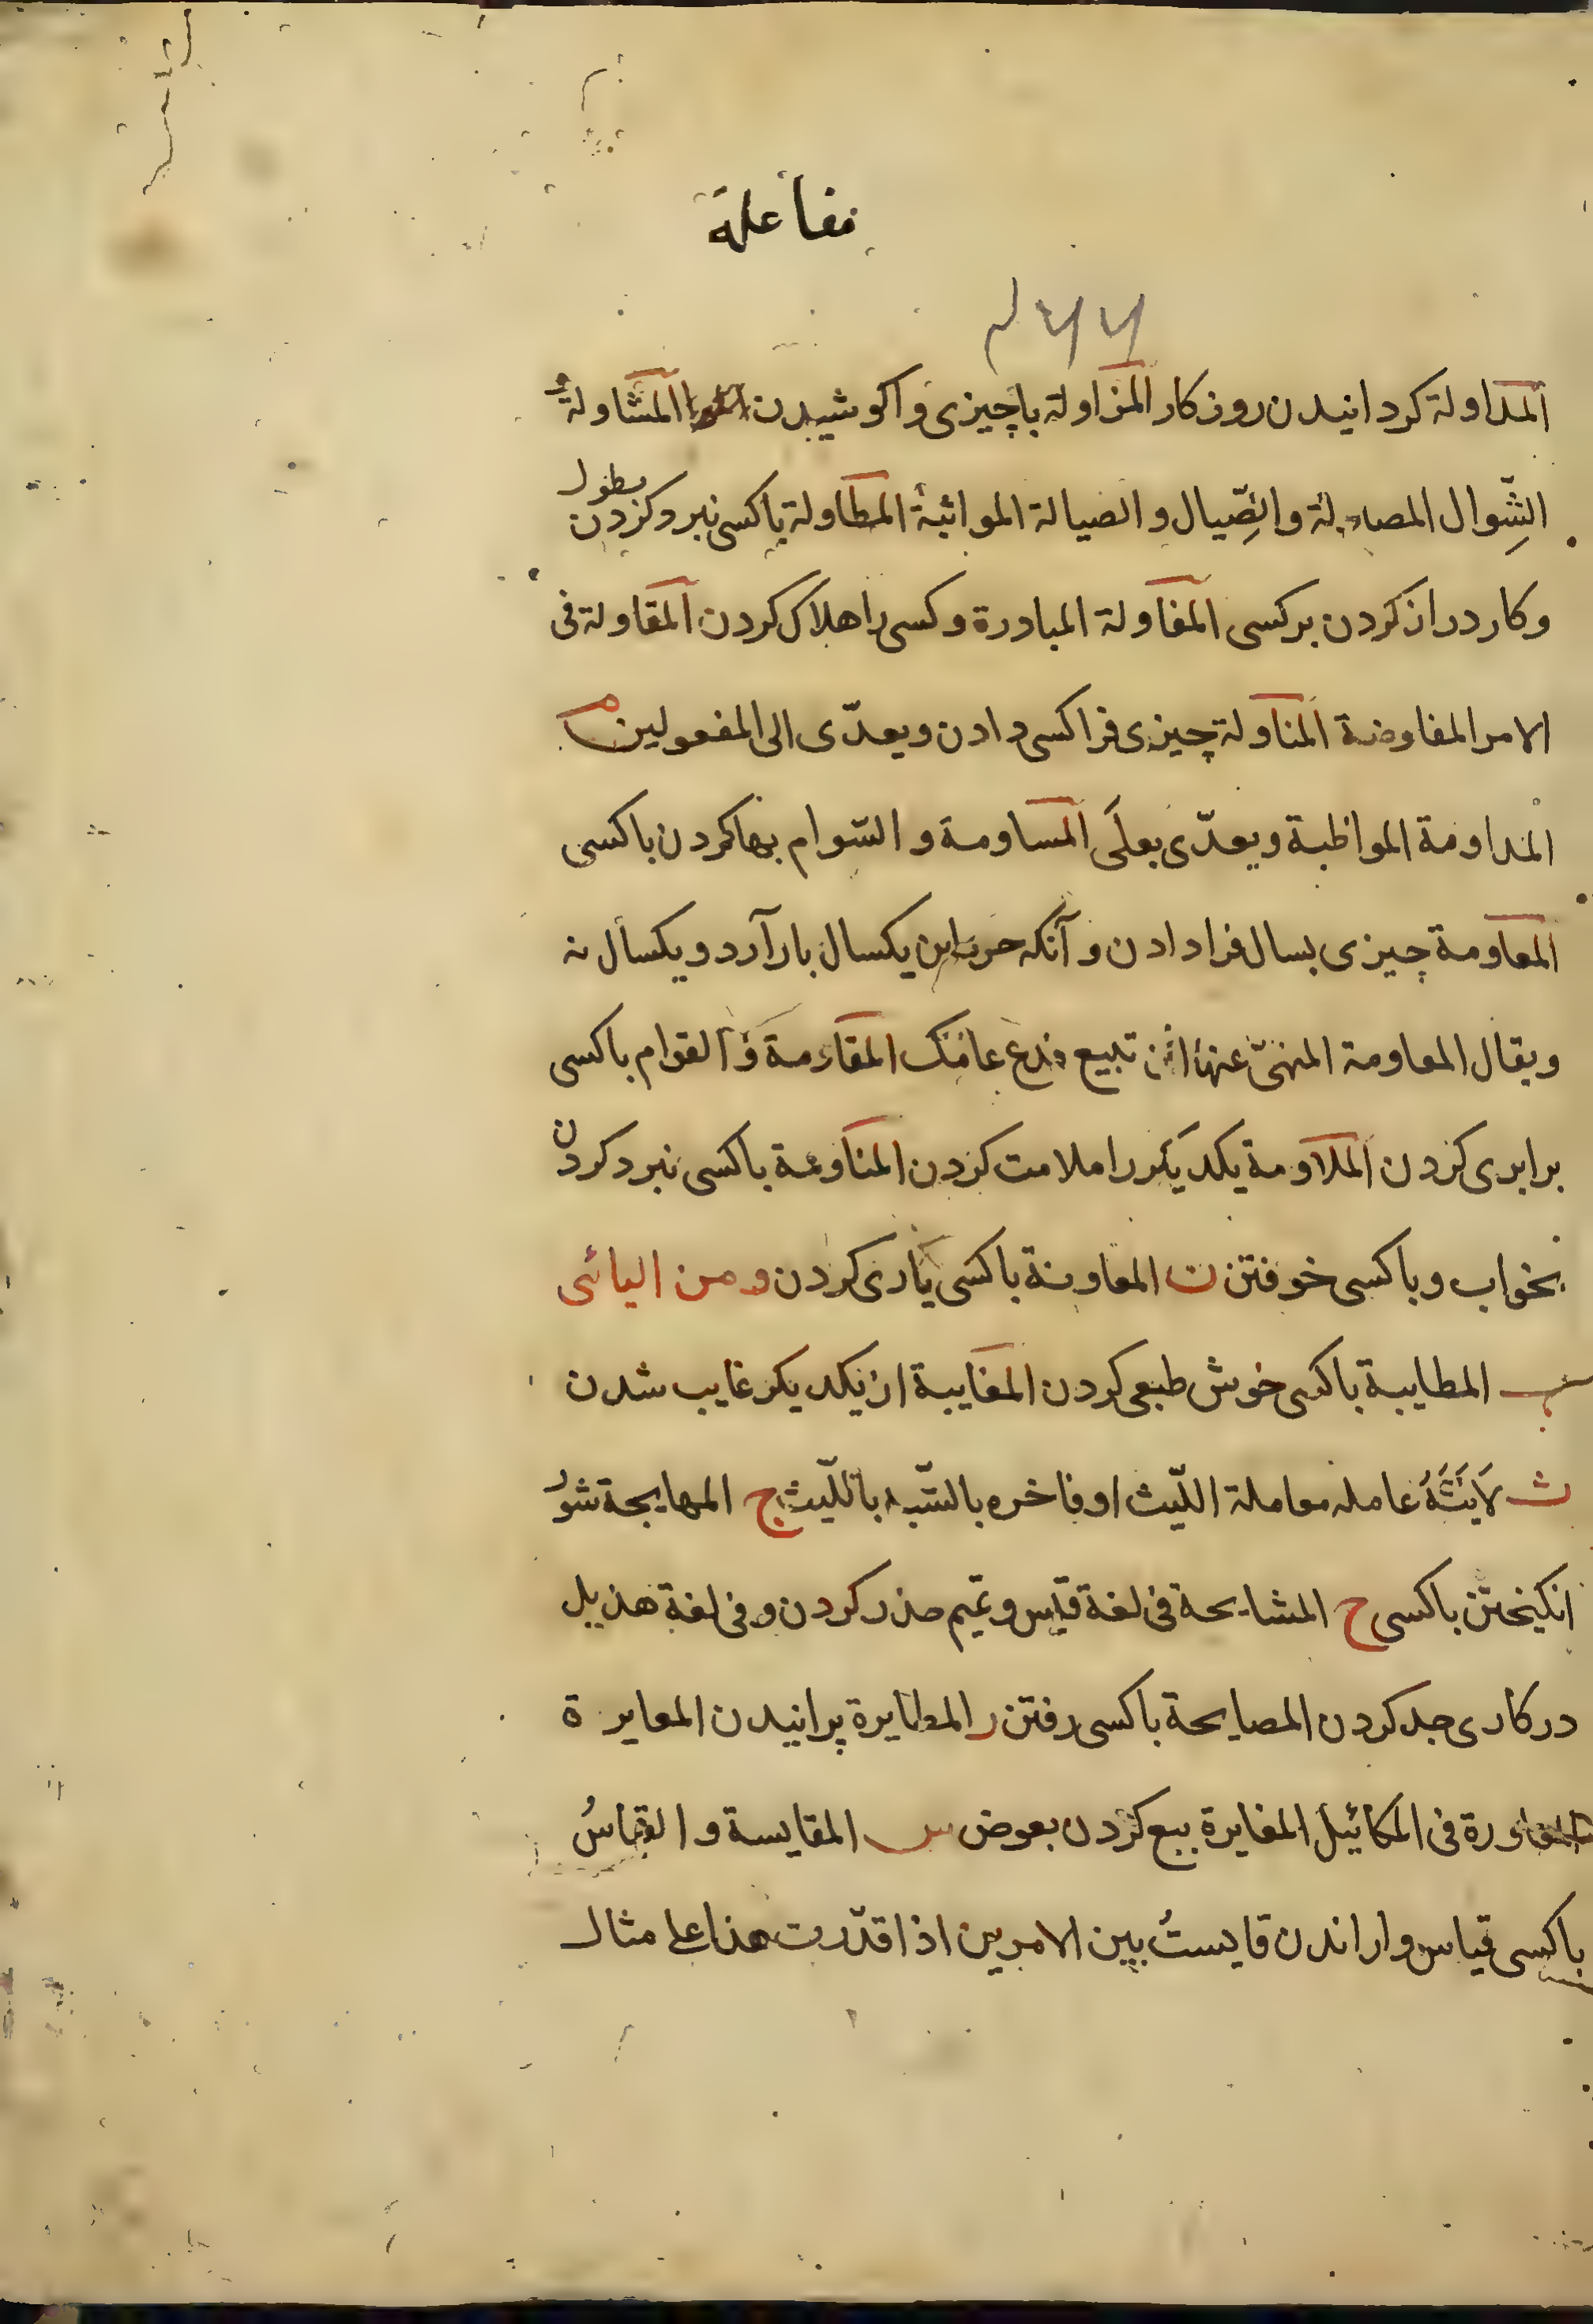 مفاعلة
المداولة کردانیدن روزکار المزاولة باچیزی واکوشیدن المشاولةُ
الشِّوال المصاولة والصِّیال والصیالة المواثبة المطاولة باکسی نبرد کردن بطول
وکار دراز کردن برکسی المغاولة المبادرة وکسی را هلاک کردن المقاولة فی
الامر المفاوضة المناولة چیزی فراکسی دادن ویعدّی الی المفعولین م
المداومة المواظبة ویعدّی بعلی المساومة والسّوام بها کردن باکسی
المعاومة چیزی بسال فرادادن وآنکه خرمابن یکسال بارآرد ویکسال نه
ویقال المعاومة المنهیّ عنها ان تبیع زرع عامک المقاومة والقوام باکسی
برابری کردن الملاومة یکدیکر را ملامت کردن المناومة باکسی نبرد کردن
بخواب وباکسی خوفتن ن المعاونة باکسی یاری کردن ومن الیائی
ب المطایبة باکسی خوش طبعی کردن المغایبة از یکدیکر غایب شدن
ث لَایَثَهُ عامله معاملة اللّیث او فاخره بالشّبه باللّیث ج المهایجة شور
انکیختن باکسی ح المشایحة فی لغة قیس وتمیم حذر کردن وفی لغة هذیل
درکاری جد کردن المصایحة باکسی رفتن ر المطایرة پرانیدن المعایرة
فی المکائیل المغایرة بیع کردن بعوض س المقایسة والقیاسُ
باکسی قیاس واراندن قایستُ بین الامرین اذا قدّرت هذا علی مثال